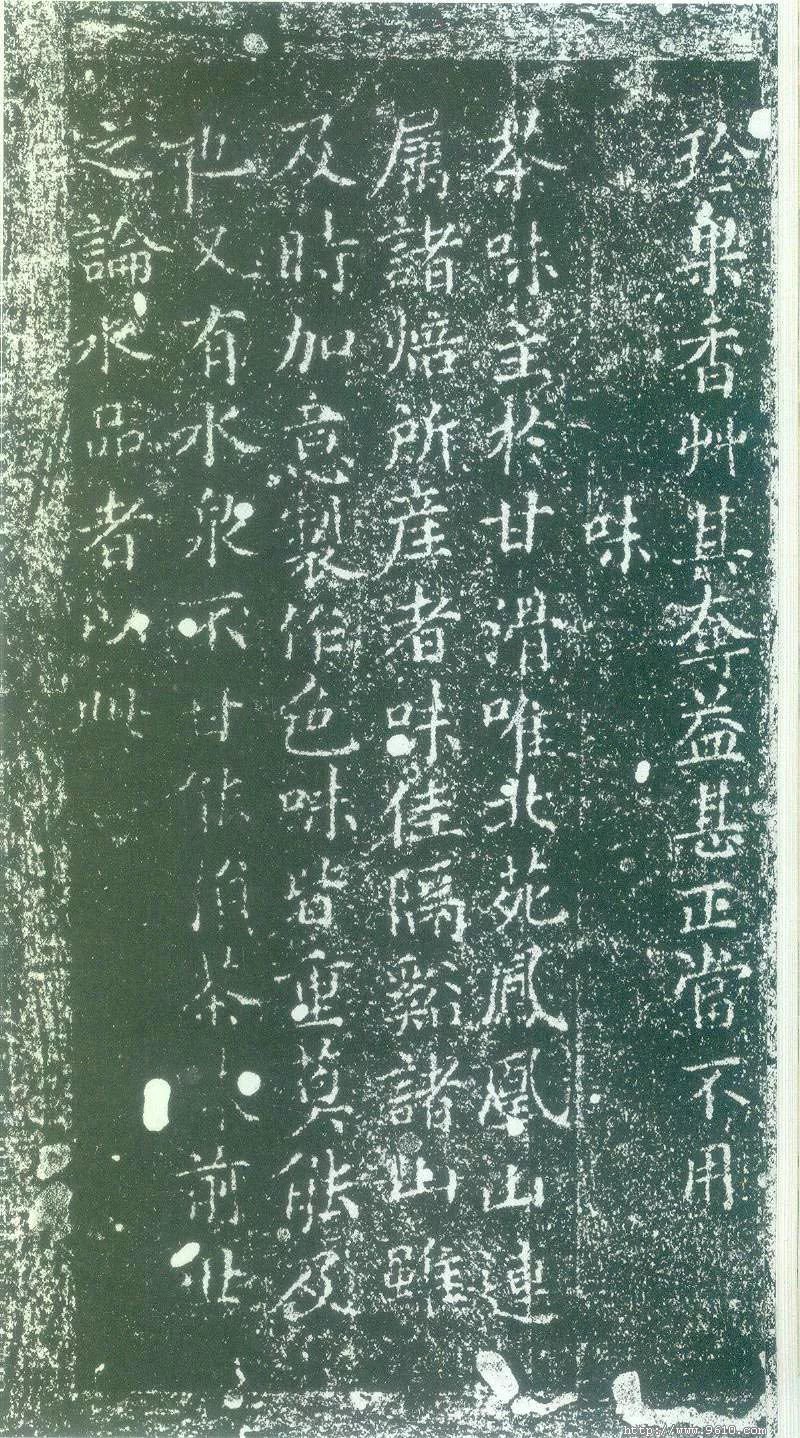 珍果香艸其奪益甚正當不用
味
茶味主於甘滑唯北苑鳳凰山連
属諸焙所産者味佳隔谿諸山雖
及時加意製作色味皆重莫能及
也又有水泉不甘能損茶味前世
之論水品者以此
http://www.9610.com